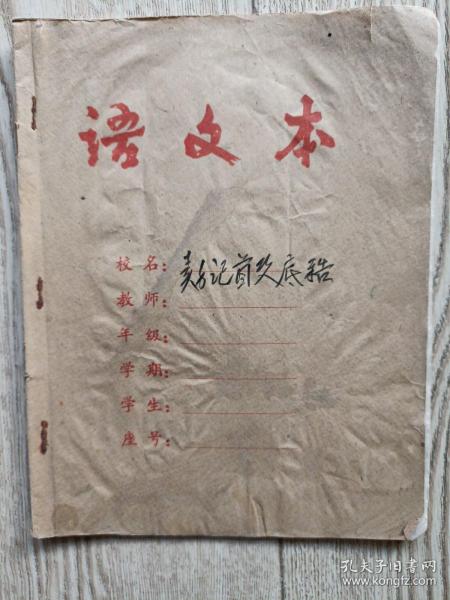 语文本
校名:
教师:
年级:
学期:
学生:
座号:
孔夫子旧书网
www.kongfz.com